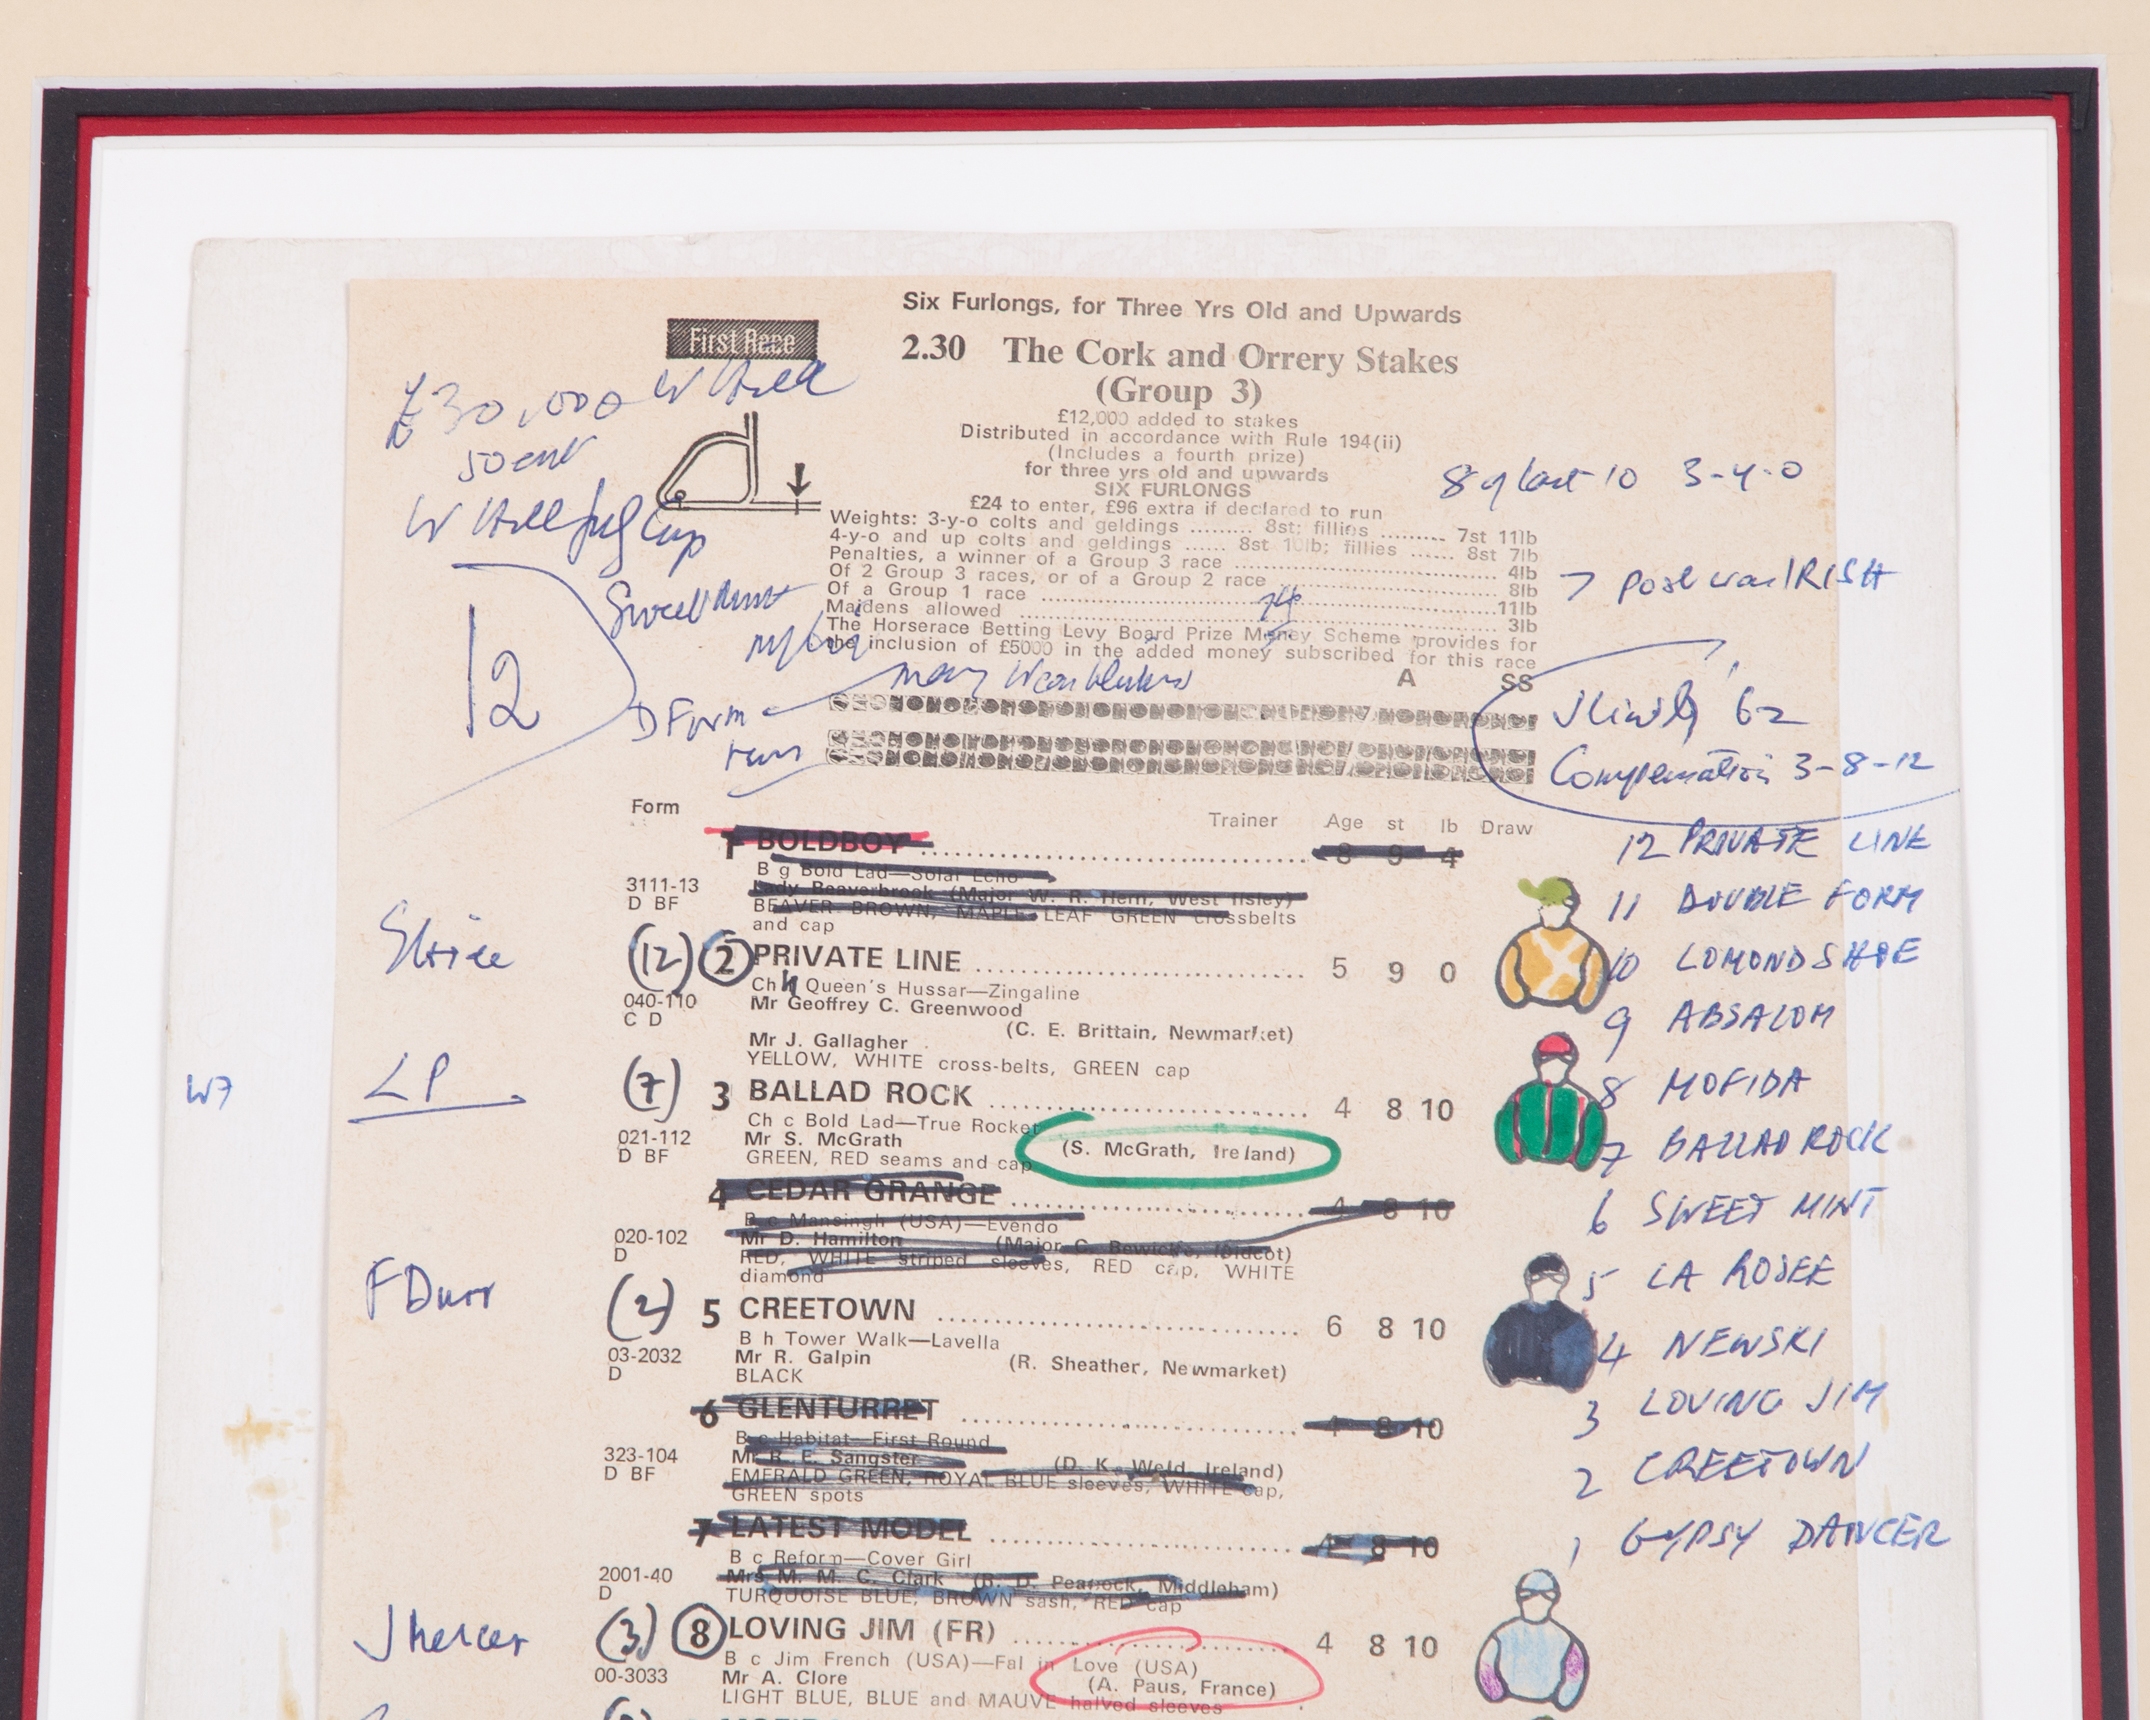 Six Furlongs, for Three Yrs Old and Upwards
First Race
2.30 The Cork and Orrery Stakes
(Group 3)
£12,000 added to stakes
Distributed in accordance with Rule 194(ii)
(Includes a fourth prize)
for three yrs old and upwards
SIX FURLONGS
£24 to enter, £96 extra if declared to run
Weights: 3-y-o colts and geldings ......... 8st; fillies ......... 7st 11lb
4-y-o and up colts and geldings ...... 8st 10lb; fillies ...... 8st 7lb
Penalties, a winner of a Group 3 race ........ 4lb
Of 2 Group 3 races, or of a Group 2 race ........ 8lb
Of a Group 1 race ........ 11lb
Maidens allowed ........ 3lb
The Horserace Betting Levy Board Prize Money Scheme provides for
the inclusion of £5000 in the added money subscribed for this race
A SS
£30,000 W Hill
W Hill
Cup
12
Sweet Mint
D Form
may wear blinkers
runs
8 of last 10 3-y-o
post war IRISH
6-2
Compensation 3-8-12
Form Trainer Age st lb Draw
1 BOLDBOY ........ 8 9 4
B g Bold Lad—Solar Echo
3111-13 Lady Beaverbrook (Major W. R. Hern, West Ilsley)
D BF BEAVER BROWN, MAPLE LEAF GREEN crossbelts
and cap
(12) 2 PRIVATE LINE ........ 5 9 0
Ch h Queen's Hussar—Zingaline
040-110 Mr Geoffrey C. Greenwood
C D (C. E. Brittain, Newmarket)
Mr J. Gallagher
YELLOW, WHITE cross-belts, GREEN cap
W7 LP (7) 3 BALLAD ROCK ........ 4 8 10
Ch c Bold Lad—True Rocket
021-112 Mr S. McGrath (S. McGrath, Ireland)
D BF GREEN, RED seams and cap
4 CEDAR GRANGE ........ 4 8 10
B c Mansingh (USA)—Evendo
020-102 Mr D. Hamilton (Major C. Bewicke, Didcot)
D RED, WHITE striped sleeves, RED cap, WHITE
diamond
F Durr (2) 5 CREETOWN ........ 6 8 10
B h Tower Walk—Lavella
03-2032 Mr R. Galpin (R. Sheather, Newmarket)
D BLACK
6 GLENTURRET ........ 4 8 10
B c Habitat—First Round
323-104 Mr R. E. Sangster (D. K. Weld, Ireland)
D BF EMERALD GREEN, ROYAL BLUE sleeves, WHITE cap,
GREEN spots
7 LATEST MODEL ........ 4 8 10
B c Reform—Cover Girl
2001-40 Mrs M. M. C. Clark (R. D. Peacock, Middleham)
D TURQUOISE BLUE, BROWN sash, RED cap
J Mercer (3) 8 LOVING JIM (FR) ........ 4 8 10
B c Jim French (USA)—Fal in Love (USA)
00-3033 Mr A. Clore (A. Paus, France)
LIGHT BLUE, BLUE and MAUVE halved sleeves
12 PRIVATE LINE
11 DOUBLE FORM
10 LOMOND SHOE
9 ABSALOM
8 MOFIDA
7 BALLAD ROCK
6 SWEET MINT
5 LA ROSEE
4 NEWSKI
3 LOVING JIM
2 CREETOWN
1 GYPSY DANCER